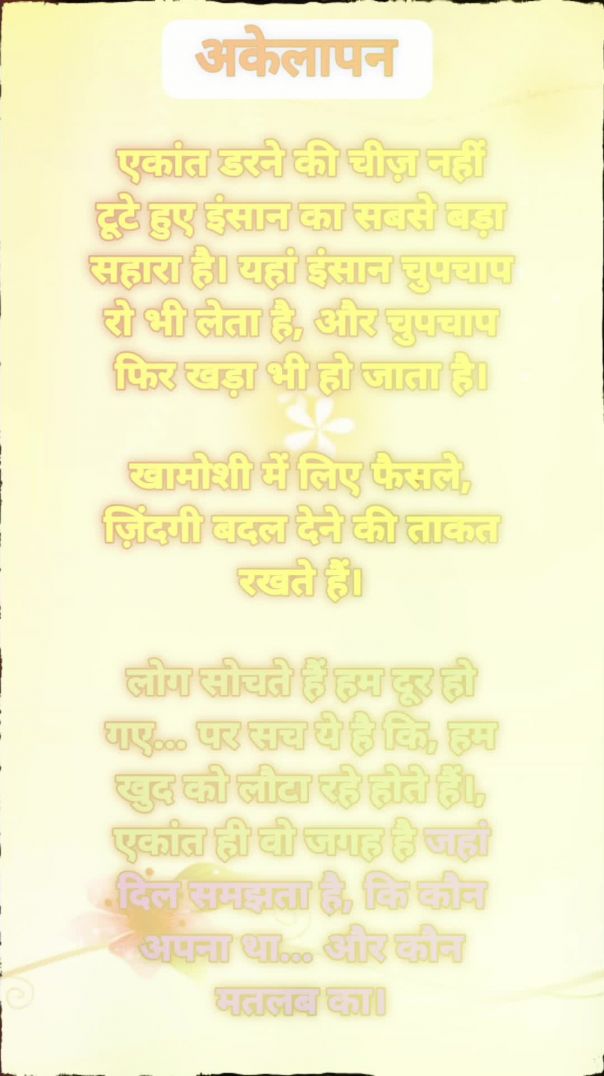 अकेलापन
एकांत डरने की चीज़ नहीं
टूटे हुए इंसान का सबसे बड़ा
सहारा है। यहां इंसान चुपचाप
रो भी लेता है, और चुपचाप
फिर खड़ा भी हो जाता है।
खामोशी में लिए फैसले,
ज़िंदगी बदल देने की ताकत
रखते हैं।
लोग सोचते हैं हम दूर हो
गए... पर सच ये है कि, हम
खुद को लौटा रहे होते हैं।,
एकांत ही वो जगह है जहां
दिल समझता है, कि कौन
अपना था... और कौन
मतलब का।